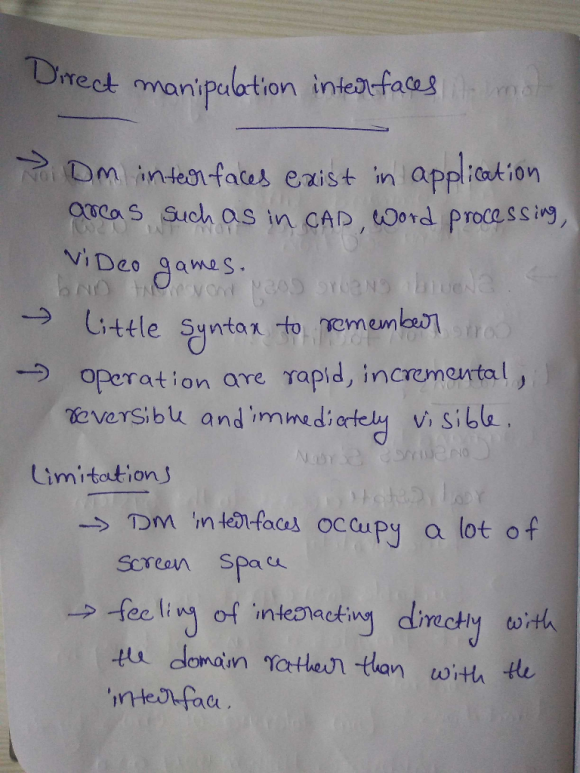 Direct manipulation interfaces
→ DM interfaces exist in application
areas such as in CAD, word processing,
ViDeo games.
→ little syntax to remember
→ operation are rapid, incremental,
reversible and immediately visible.
Limitations
→ DM interfaces occupy a lot of
screen space
→ feeling of interacting directly with
the domain rather than with the
interface.